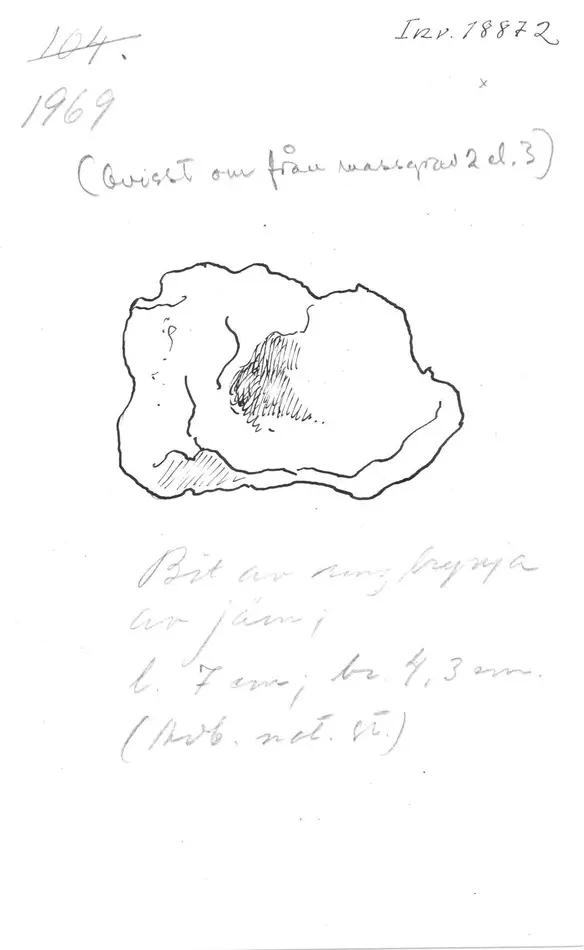 104.
Inv. 18872
x
1969
(Ovisst om från massgrav 2 el. 3)
Bit av ringbrynja
av järn;
l. 7 cm; br. 4,3 cm.
(Avb. nat. st.)